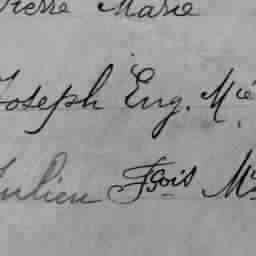 Pierre Marie
Joseph Eug. Mie
Julien Fçois Mie